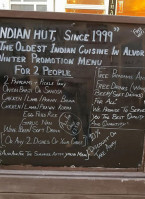 INDIAN HUT, SINCE 1999"
"THE OLDEST INDIAN CUISINE IN ALVOR
WINTER PROMOTION MENU
FOR 2 PEOPLE
2 POPPADOMS + PICKLE TRAY
ONION BHAJI OR SAMOSA
CHICKEN / LAMB / PRAWN
CHICKEN / LAMB / PRAWN KORMA
EGG FRIED RICE
GARLIC NAN
WINE BEER SOFT DRINK
OR ANY 2 DISHES OF YOUR
FREE
FREE DRINKS (WINE
BEER / SOFT DRINKS)
FOR ALL
WE PROMISE TO SERVE
YOU THE BEST QUALITY
AND
DISCOUNT